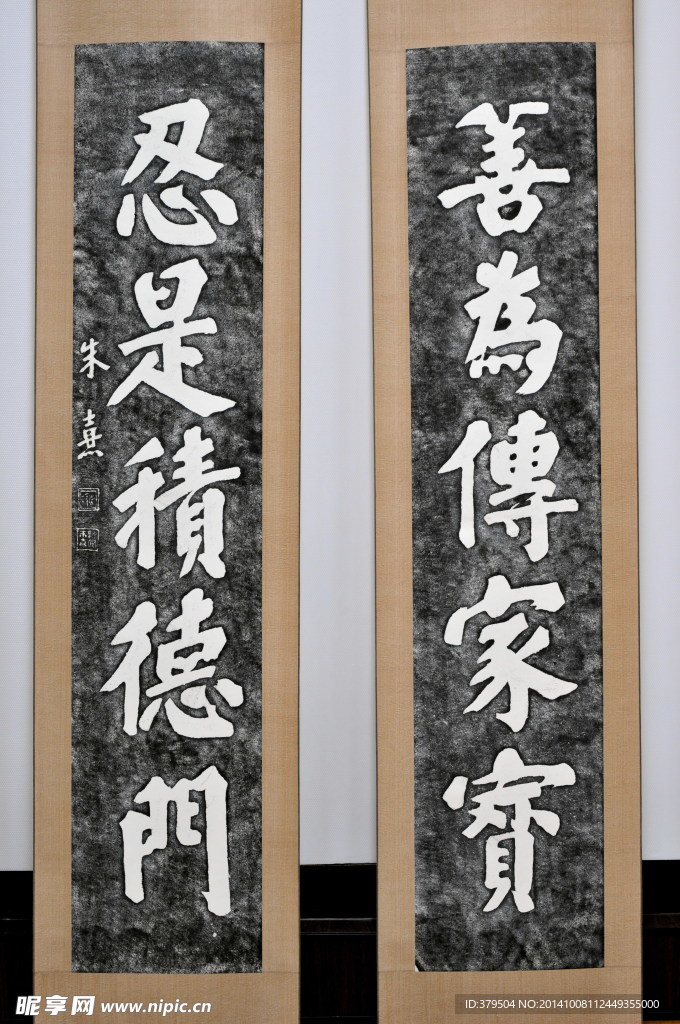 善為傳家寶
忍是積德門
朱熹
昵享网 www.nipic.cn
ID:379504 NO:20141008112449355000